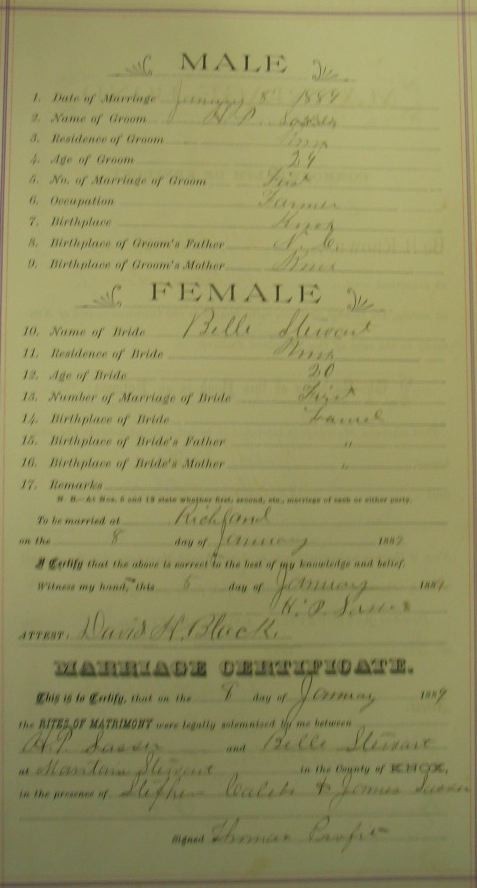 MALE
1. Date of Marriage January 8 1889
2. Name of Groom H. P. Sasser
3. Residence of Groom Knox
4. Age of Groom 24
5. No. of Marriage of Groom First
6. Occupation Farmer
7. Birthplace Knox
8. Birthplace of Groom's Father N. C.
9. Birthplace of Groom's Mother Knox
FEMALE
10. Name of Bride Belle Stewart
11. Residence of Bride Knox
12. Age of Bride 20
13. Number of Marriage of Bride First
14. Birthplace of Bride Laurel
15. Birthplace of Bride's Father "
16. Birthplace of Bride's Mother "
17. Remarks
N. B.—At Nos. 5 and 13 state whether first, second, etc., marriage of each or either party.
To be married at Richland
on the 8 day of January 1889
I Certify that the above is correct to the best of my knowledge and belief.
Witness my hand, this day of January 1889
H. P. Sasser
ATTEST: David H. Black.
MARRIAGE CERTIFICATE.
This is to Certify, that on the 8 day of January 1889
the RITES OF MATRIMONY were legally solemnized by me between
H. P. Sasser and Belle Stewart
at Stewart in the County of KNOX,
in the presence of Stephen & James Sasser
Signed Thomas